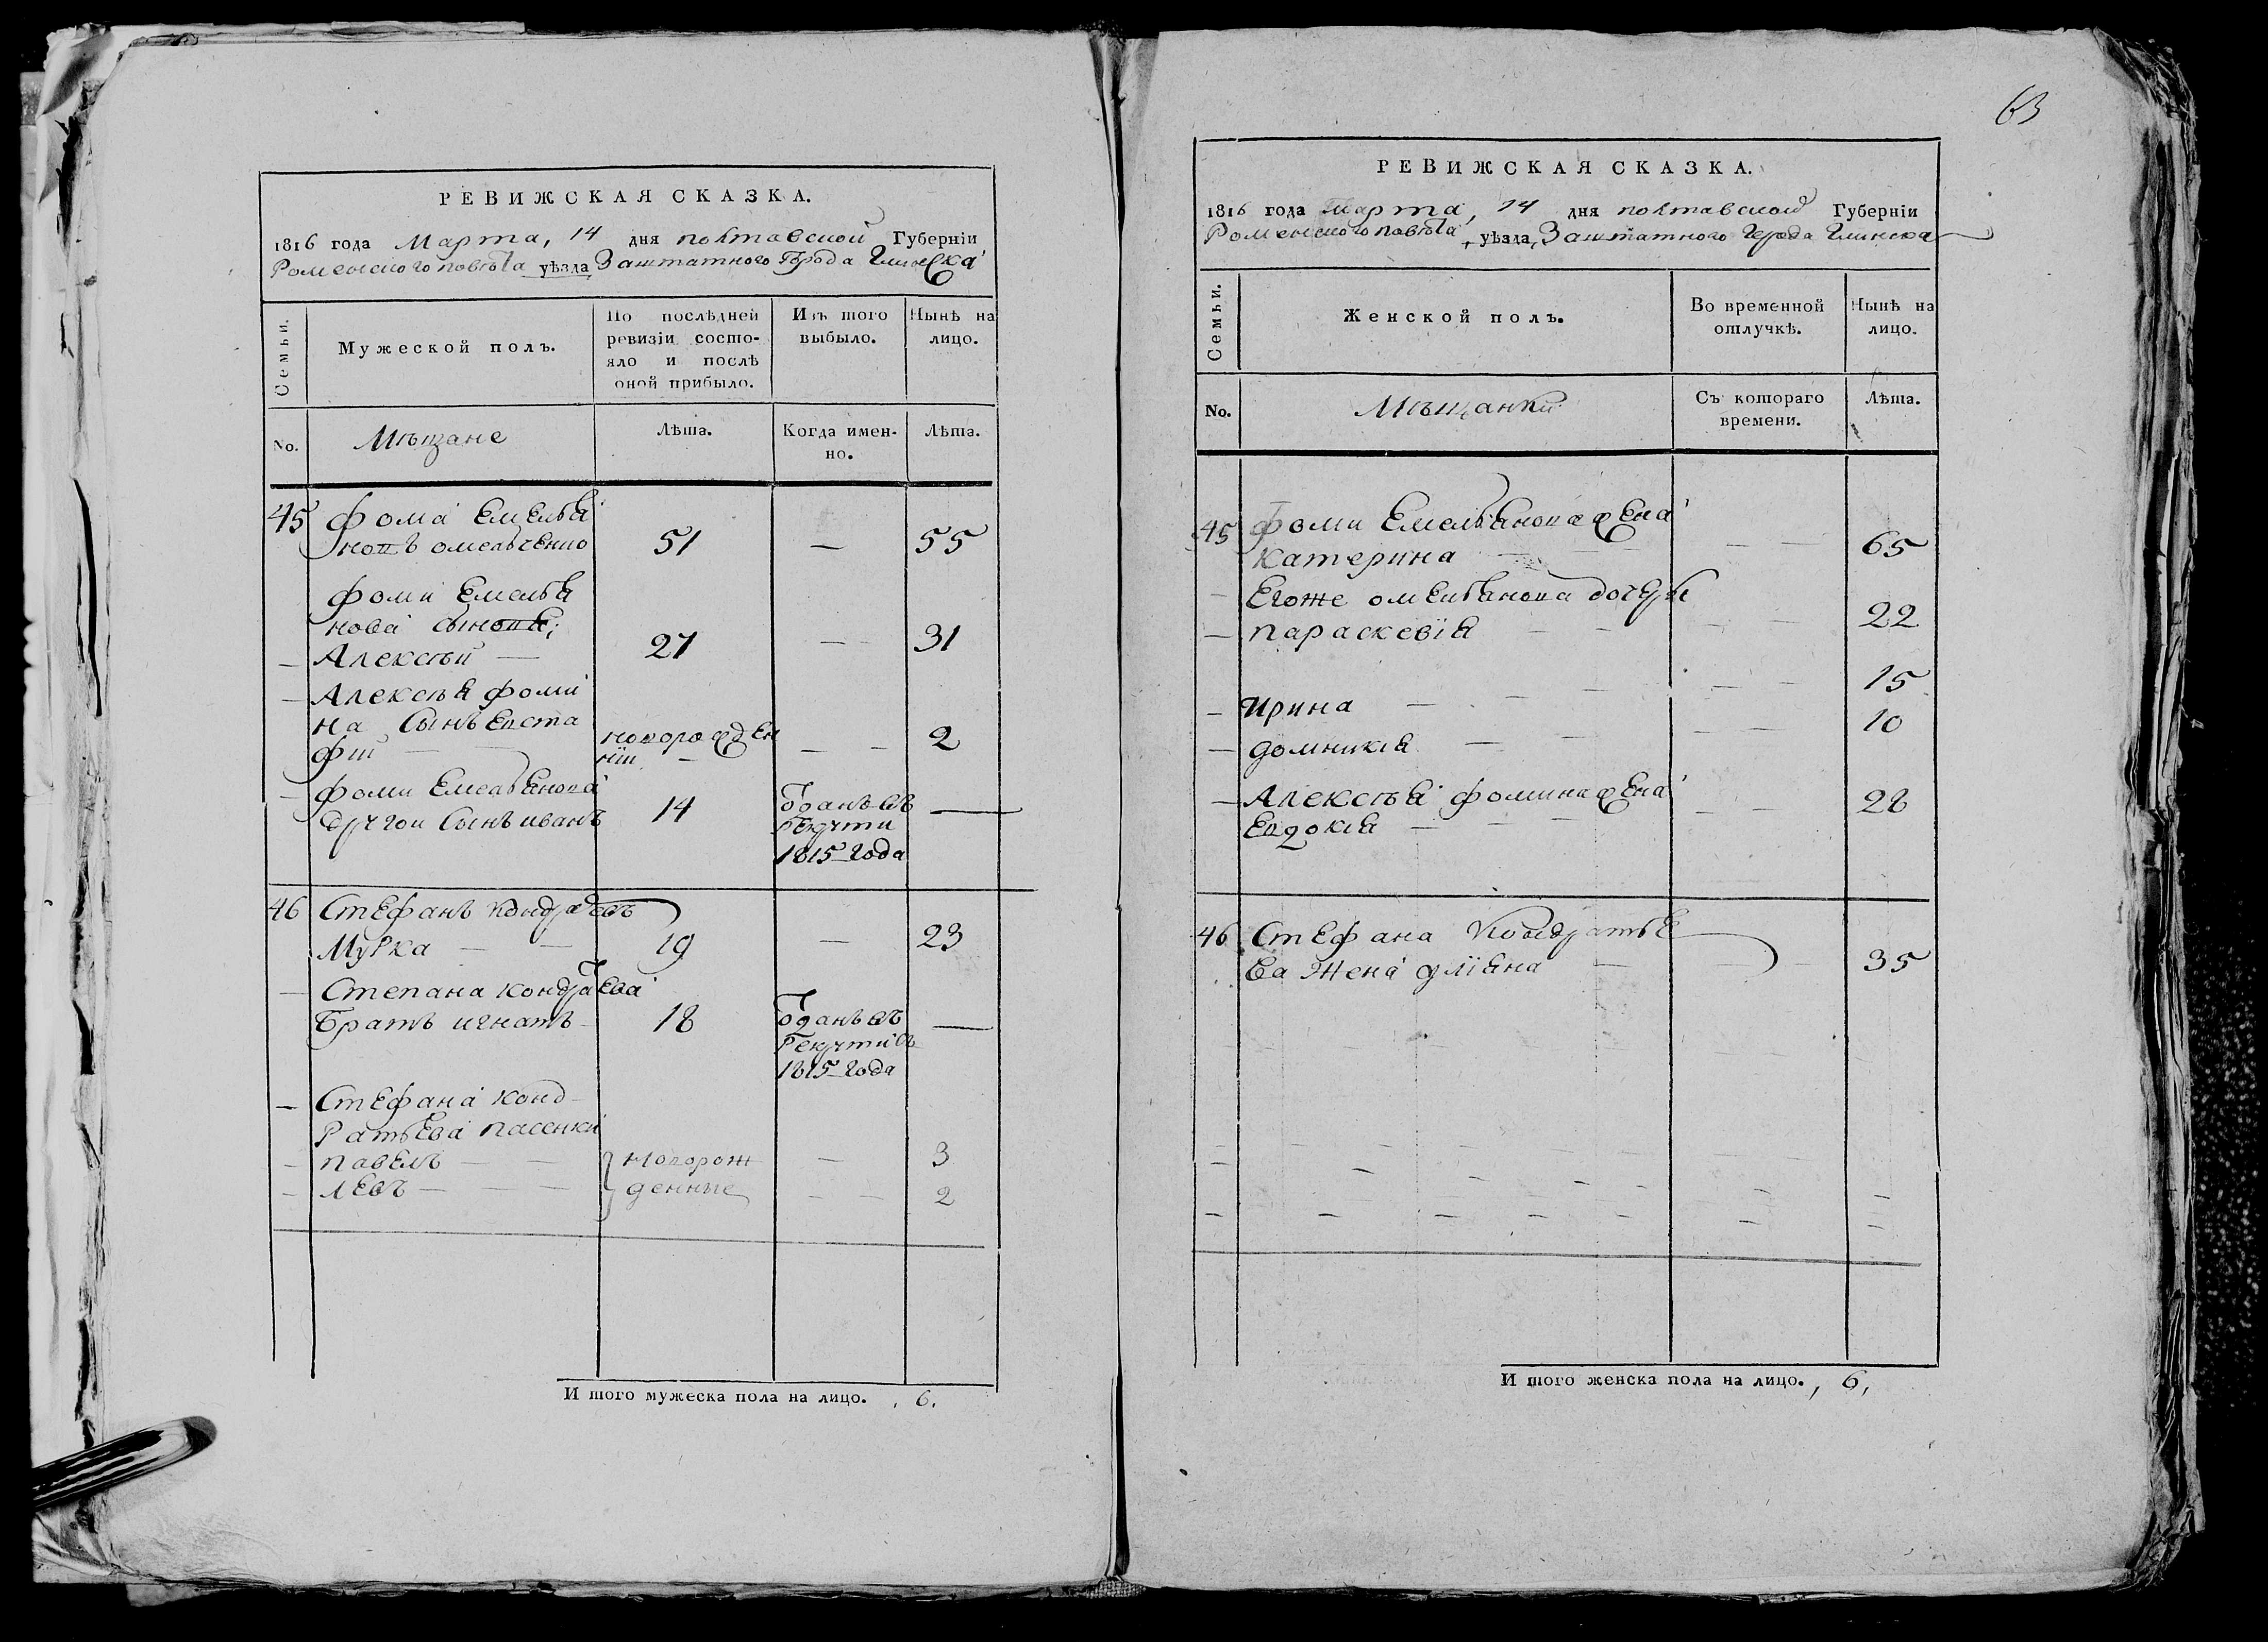 РЕВИЖСКАЯ СКАЗКА.
1816 года Марта, 14 дня полтавской Губерніи
Роменского повѣта уѣзда Заштатного Города Глинска
Семьи.
Мужеской полъ.
По послѣдней
ревизіи состо-
яло и послѣ
оной прибыло.
Изъ того
выбыло.
Нынѣ на
лицо.
No.
Мѣщане
Лѣта.
Когда имен-
но.
Лѣта.
45 Фома Емелья
новъ омельченко 51 — 55
Фоми Емелья
нова сынови;
— Алексѣй — 27 — 31
— Алексѣя фоми
на Сынъ Евста
фій — новорожден
ній — — — 2
— Фоми Емельянова
другои Сынъ иванъ 14 Отданъ въ
Рекрути
1815 года —
46 Стефанъ кондратевъ
Мурка — — 19 — 23
— Степана кондратева
Братъ игнатъ 18 Отданъ въ
Рекрути въ
1815 года —
— Стефана конд
ратьева пасенки
— павелъ — — новорож — 3
— левъ — — — денные — — 2
И того мужеска пола на лицо. , 6.
63
РЕВИЖСКАЯ СКАЗКА.
1816 года Марта, 14 дня полтавской Губерніи
Роменского повѣта уѣзда, Заштатного Города Глинска
Семьи.
Женской полъ.
Во временной
отлучкѣ.
Нынѣ на
лицо.
No.
Мѣщанки
Съ котораго
времени.
Лѣта.
45 Фоми Емельянова жена
катерина — — 65
— Егоже омельянова дочери
— параскевія — — 22
— ирина — — — 15
— домникія — — — 10
— Алексѣя фомина жена
Евдокія — — — 28
46 Стефана Кондратье
ва жена уліяна — 35
И того женска пола на лицо. , 6,